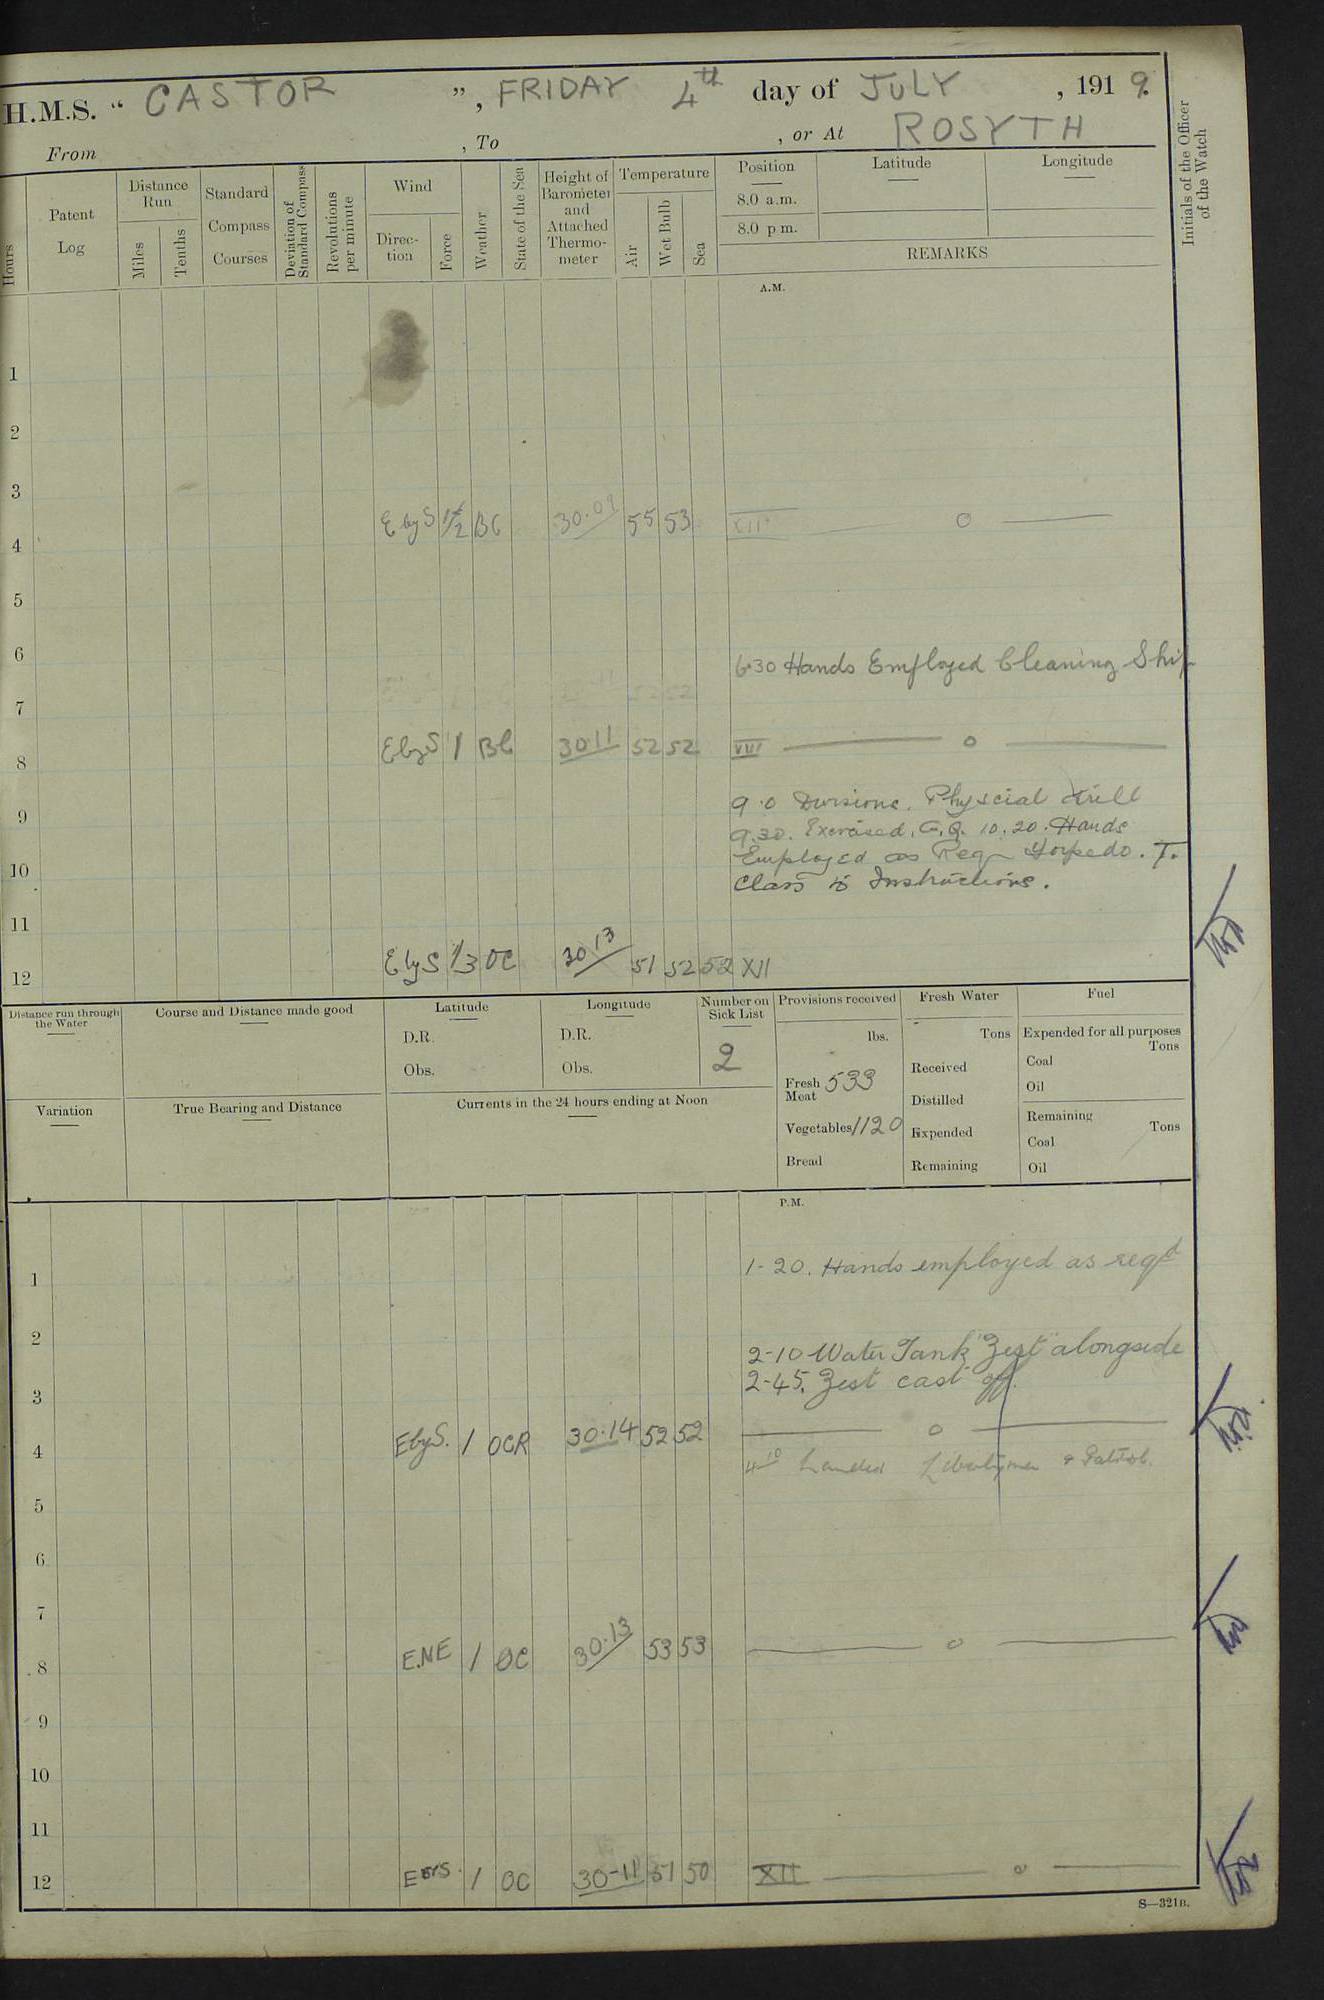 H.M.S. “ CASTOR ”, FRIDAY 4th day of JULY, 1919.
From , To , or At ROSYTH
Initials of the Officer of the Watch
Hours
Patent Log
Distance Run
Miles
Tenths
Standard Compass Courses
Deviation of Standard Compass
Revolutions per minute
Wind
Direc-tion
Force
Weather
State of the Sea
Height of Barometer and Attached Thermo-meter
Temperature
Air
Wet Bulb
Sea
Position
8.0 a.m.
8.0 p m.
Latitude
Longitude
REMARKS
A.M.
1
2
3
E by S 1/2 BC 30.09 55 53 XII o
4
5
6
6.30 Hands Employed Cleaning Ship
7
E by S 1 BC 30.11 52 52 VIII o
8
9.0 Divisions. Physcial drill
9
9.30. Exercised. G.Q. 10.20. Hands
Employed as Req Torpedo. T.
10
Class to Instructions.
11
E by S 1/3 OC 30 13 51 52 52 XII
12
Distance run through the Water
Course and Distance made good
Latitude
D.R.
Obs.
Longitude
D.R.
Obs.
Number on Sick List
2
Provisions received
lbs.
Fresh Meat 533
Vegetables 1120
Bread
Fresh Water
Tons
Received
Distilled
Expended
Remaining
Fuel
Expended for all purposes
Tons
Coal
Oil
Remaining
Tons
Coal
Oil
Variation
True Bearing and Distance
Currents in the 24 hours ending at Noon
P.M.
1-20. Hands employed as reqd
1
2
2-10 Water Tank "Zest" alongside
2-45. Zest cast off.
3
E by S. 1 OCR 30.14 52 52 o
4
4.10 Landed Libertymen & Patrol.
5
6
7
E.NE 1 OC 30.13 53 53 o
8
9
10
11
E BY S. 1 OC 30-11 51 50 XII o
12
S—321B.